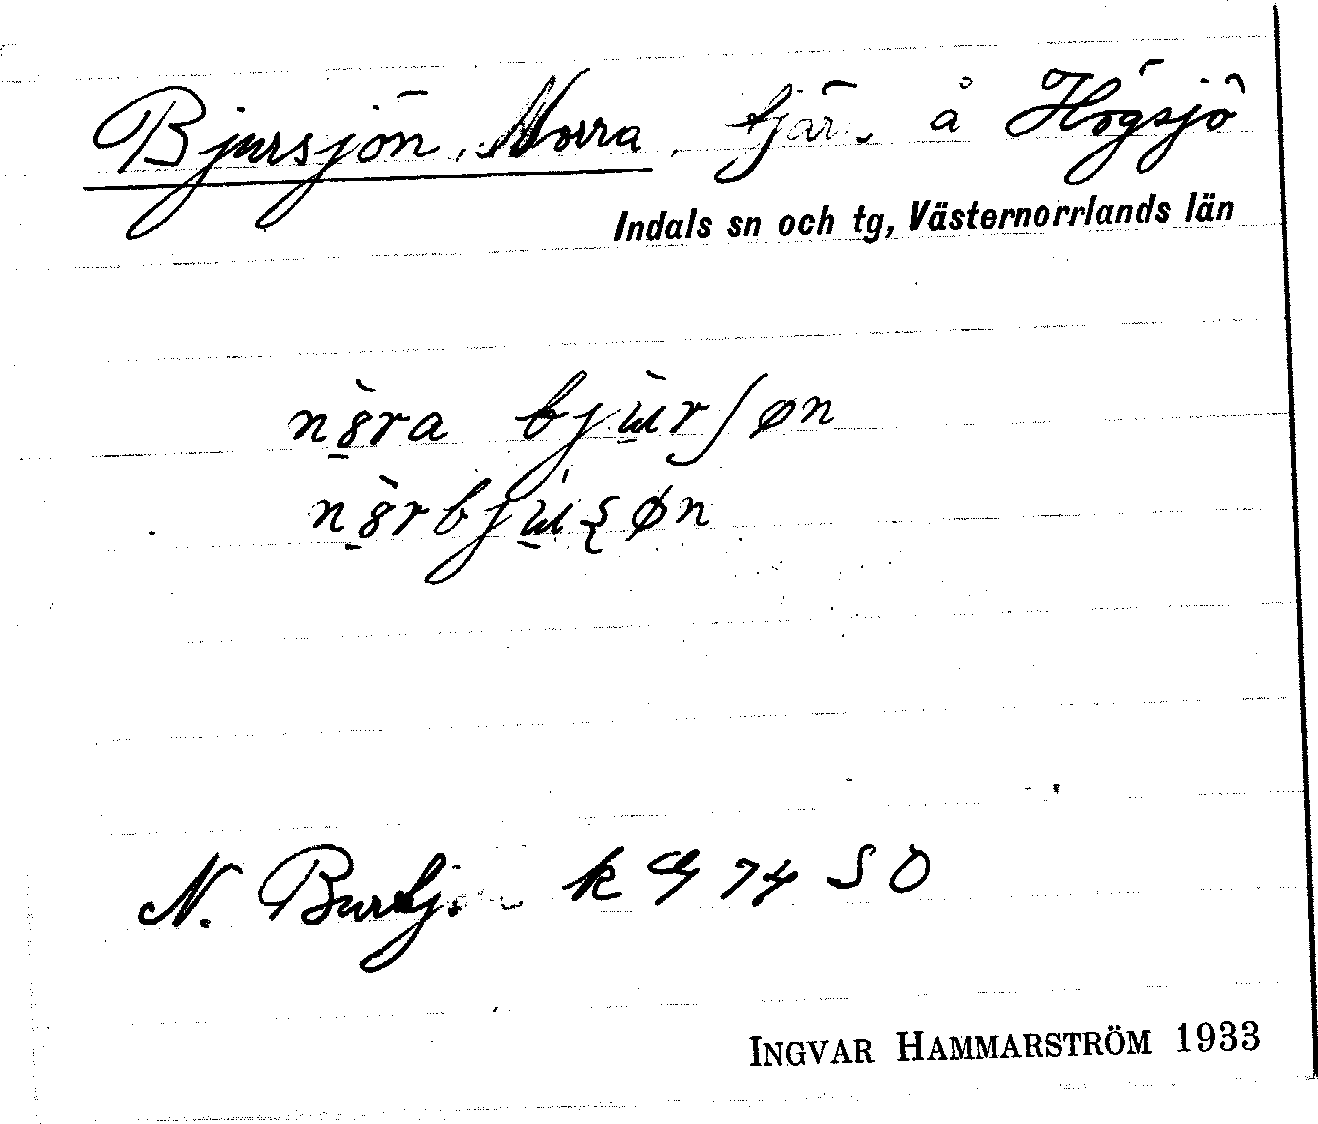 Bjursjön, Norra, tjär. å Högsjö
Indals sn och tg, Västernorrlands län
nȣ̀ra bjùrʃøn
nȣ̀rbjùʂøn
N. Burtj. k G 74 SO
INGVAR HAMMARSTRÖM 1933